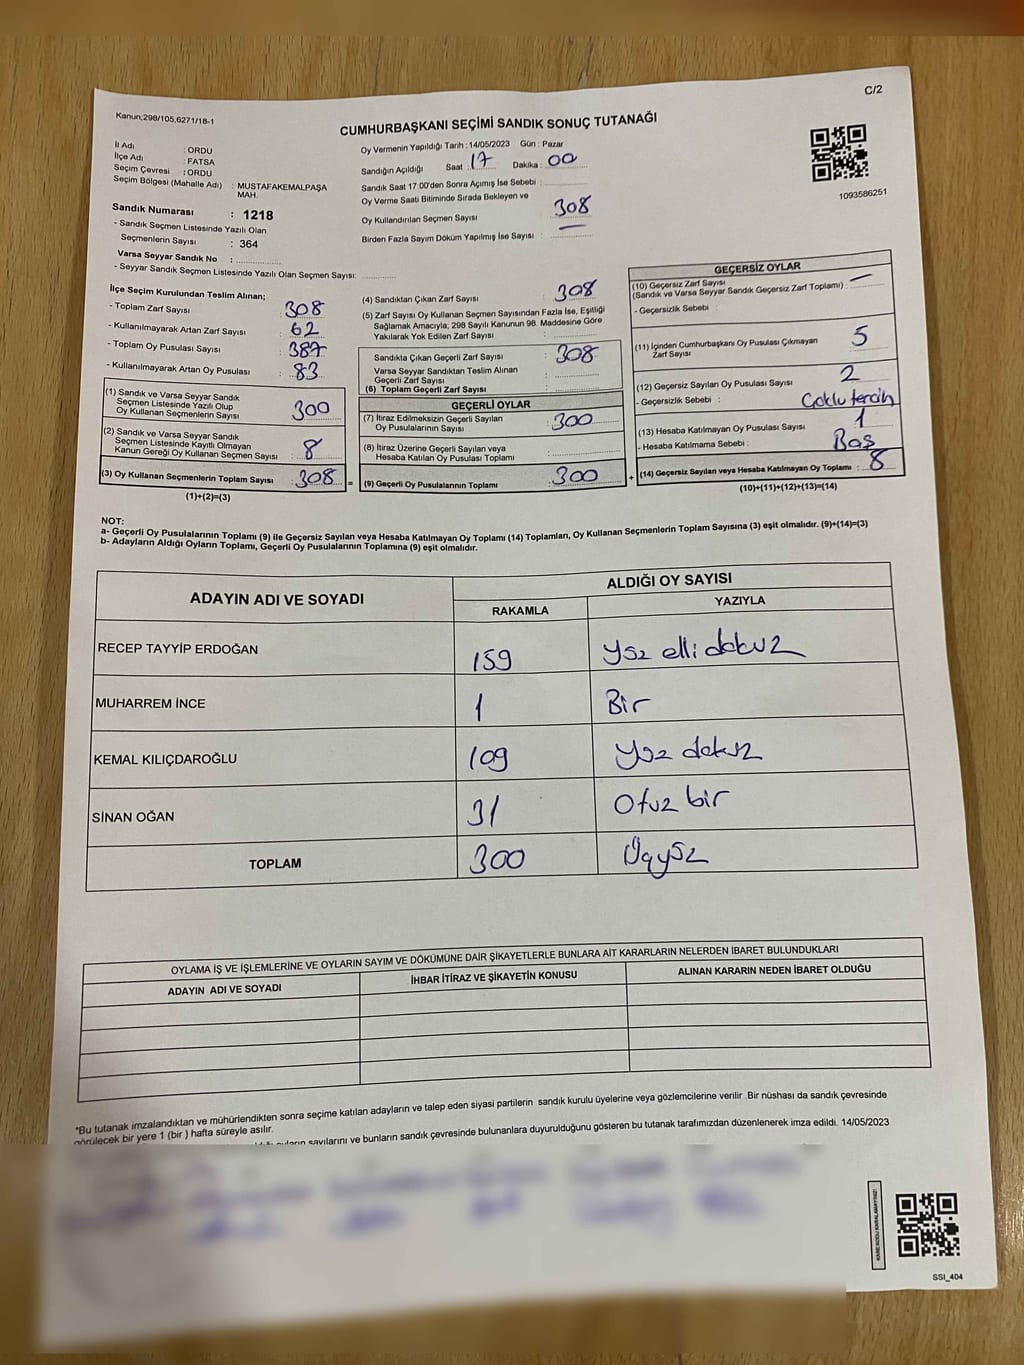 C/2
Kanun;298/105,6271/18-1
CUMHURBAŞKANI SEÇİMİ SANDIK SONUÇ TUTANAĞI
İl Adı : ORDU
İlçe Adı : FATSA
Seçim Çevresi : ORDU
Seçim Bölgesi (Mahalle Adı) : MUSTAFAKEMALPAŞA MAH.
Sandık Numarası : 1218
- Sandık Seçmen Listesinde Yazılı Olan
Seçmenlerin Sayısı : 364
Varsa Seyyar Sandık No :
- Seyyar Sandık Seçmen Listesinde Yazılı Olan Seçmen Sayısı:
Oy Vermenin Yapıldığı Tarih : 14/05/2023 Gün : Pazar
Sandığın Açıldığı Saat : 17 Dakika : 00
Sandık Saat 17:00'den Sonra Açımış İse Sebebi :
Oy Verme Saati Bitiminde Sırada Bekleyen ve
Oy Kullandırılan Seçmen Sayısı : 308
Birden Fazla Sayım Döküm Yapılmış İse Sayısı :
1093586251
İlçe Seçim Kurulundan Teslim Alınan;
- Toplam Zarf Sayısı : 308
- Kullanılmayarak Artan Zarf Sayısı : 62
- Toplam Oy Pusulası Sayısı : 387
- Kullanılmayarak Artan Oy Pusulası : 83
(1) Sandık ve Varsa Seyyar Sandık
Seçmen Listesinde Yazılı Olup
Oy Kullanan Seçmenlerin Sayısı : 300
(2) Sandık ve Varsa Seyyar Sandık
Seçmen Listesinde Kayıtlı Olmayan
Kanun Gereği Oy Kullanan Seçmen Sayısı : 8
(3) Oy Kullanan Seçmenlerin Toplam Sayısı : 308 =
(1)+(2)=(3)
(4) Sandıktan Çıkan Zarf Sayısı : 308
(5) Zarf Sayısı Oy Kullanan Seçmen Sayısından Fazla İse, Eşitliği
Sağlamak Amacıyla; 298 Sayılı Kanunun 98. Maddesine Göre
Yakılarak Yok Edilen Zarf Sayısı :
Sandıkta Çıkan Geçerli Zarf Sayısı : 308
Varsa Seyyar Sandıktan Teslim Alınan
Geçerli Zarf Sayısı :
(6) Toplam Geçerli Zarf Sayısı :
GEÇERLİ OYLAR
(7) İtiraz Edilmeksizin Geçerli Sayılan
Oy Pusulalarının Sayısı : 300
(8) İtiraz Üzerine Geçerli Sayılan veya
Hesaba Katılan Oy Pusulası Toplamı :
(9) Geçerli Oy Pusulalarının Toplamı : 300 +
GEÇERSİZ OYLAR
(10) Geçersiz Zarf Sayısı
(Sandık ve Varsa Seyyar Sandık Geçersiz Zarf Toplamı) : —
- Geçersizlik Sebebi :
(11) İçinden Cumhurbaşkanı Oy Pusulası Çıkmayan
Zarf Sayısı : 5
(12) Geçersiz Sayılan Oy Pusulası Sayısı : 2
- Geçersizlik Sebebi : Çoklu tercih
(13) Hesaba Katılmayan Oy Pusulası Sayısı : 1
- Hesaba Katılmama Sebebi : Boş
(14) Geçersiz Sayılan veya Hesaba Katılmayan Oy Toplamı : 8
(10)+(11)+(12)+(13)=(14)
NOT:
a- Geçerli Oy Pusulalarının Toplamı (9) ile Geçersiz Sayılan veya Hesaba Katılmayan Oy Toplamı (14) Toplamları, Oy Kullanan Seçmenlerin Toplam Sayısına (3) eşit olmalıdır. (9)+(14)=(3)
b- Adayların Aldığı Oyların Toplamı, Geçerli Oy Pusulalarının Toplamına (9) eşit olmalıdır.
ADAYIN ADI VE SOYADI
ALDIĞI OY SAYISI
RAKAMLA YAZIYLA
RECEP TAYYİP ERDOĞAN 159 Yüz elli dokuz
MUHARREM İNCE 1 Bir
KEMAL KILIÇDAROĞLU 109 Yüz dokuz
SİNAN OĞAN 31 Otuz bir
TOPLAM 300 Üçyüz
OYLAMA İŞ VE İŞLEMLERİNE VE OYLARIN SAYIM VE DÖKÜMÜNE DAİR ŞİKAYETLERLE BUNLARA AİT KARARLARIN NELERDEN İBARET BULUNDUKLARI
ADAYIN ADI VE SOYADI İHBAR İTİRAZ VE ŞİKAYETİN KONUSU ALINAN KARARIN NEDEN İBARET OLDUĞU
*Bu tutanak imzalandıktan ve mühürlendikten sonra seçime katılan adayların ve talep eden siyasi partilerin sandık kurulu üyelerine veya gözlemcilerine verilir .Bir nüshası da sandık çevresinde
görülecek bir yere 1 (bir ) hafta süreyle asılır.
sayılarını ve bunların sandık çevresinde bulunanlara duyurulduğunu gösteren bu tutanak tarafımızdan düzenlenerek imza edildi. 14/05/2023
KAREKODU KARALAMAYINIZ!
SSI_404